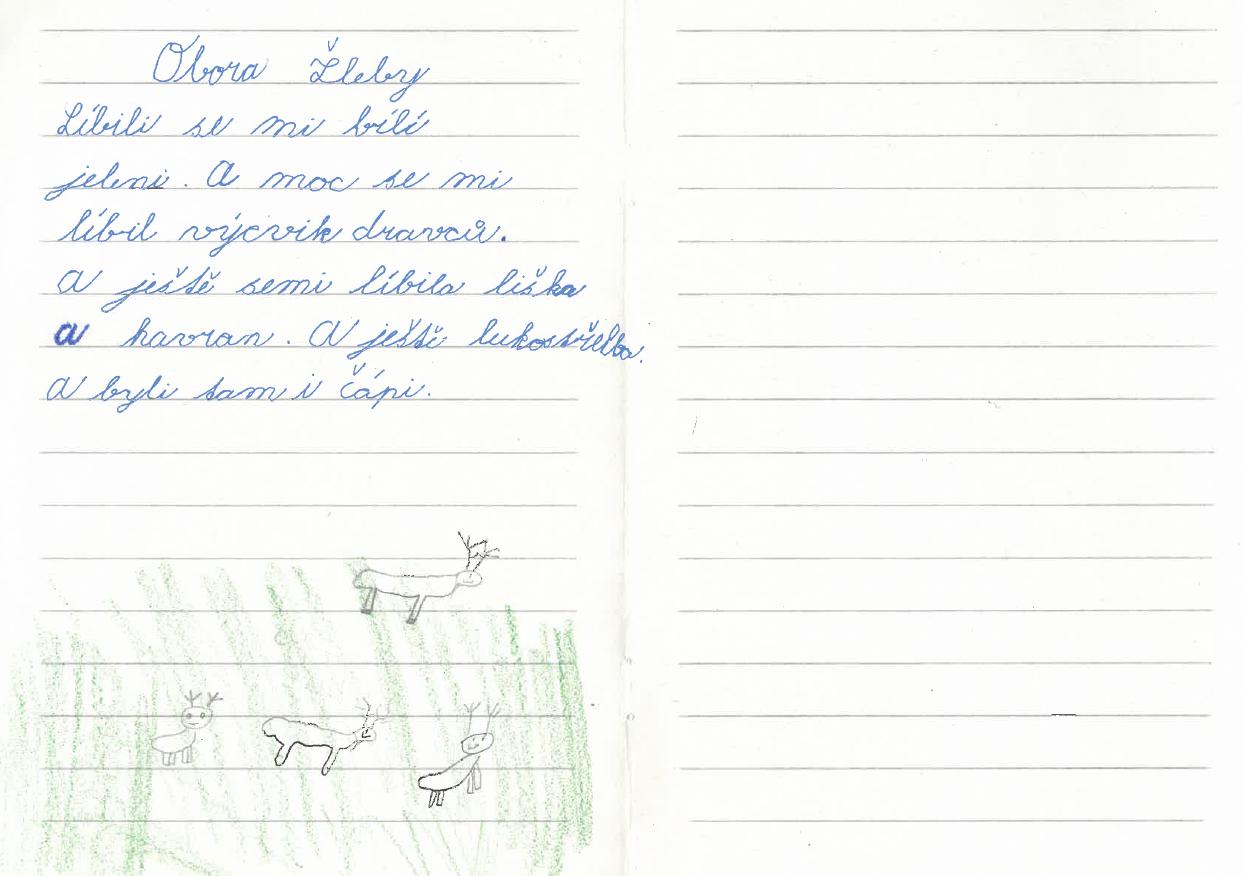 Obora Žleby
Líbili se mi bílí
jeleni. A moc se mi
líbil výcvik dravců.
A ještě semi líbila liška
a havran. A ještě lukostřelba.
A byli tam i čápi.